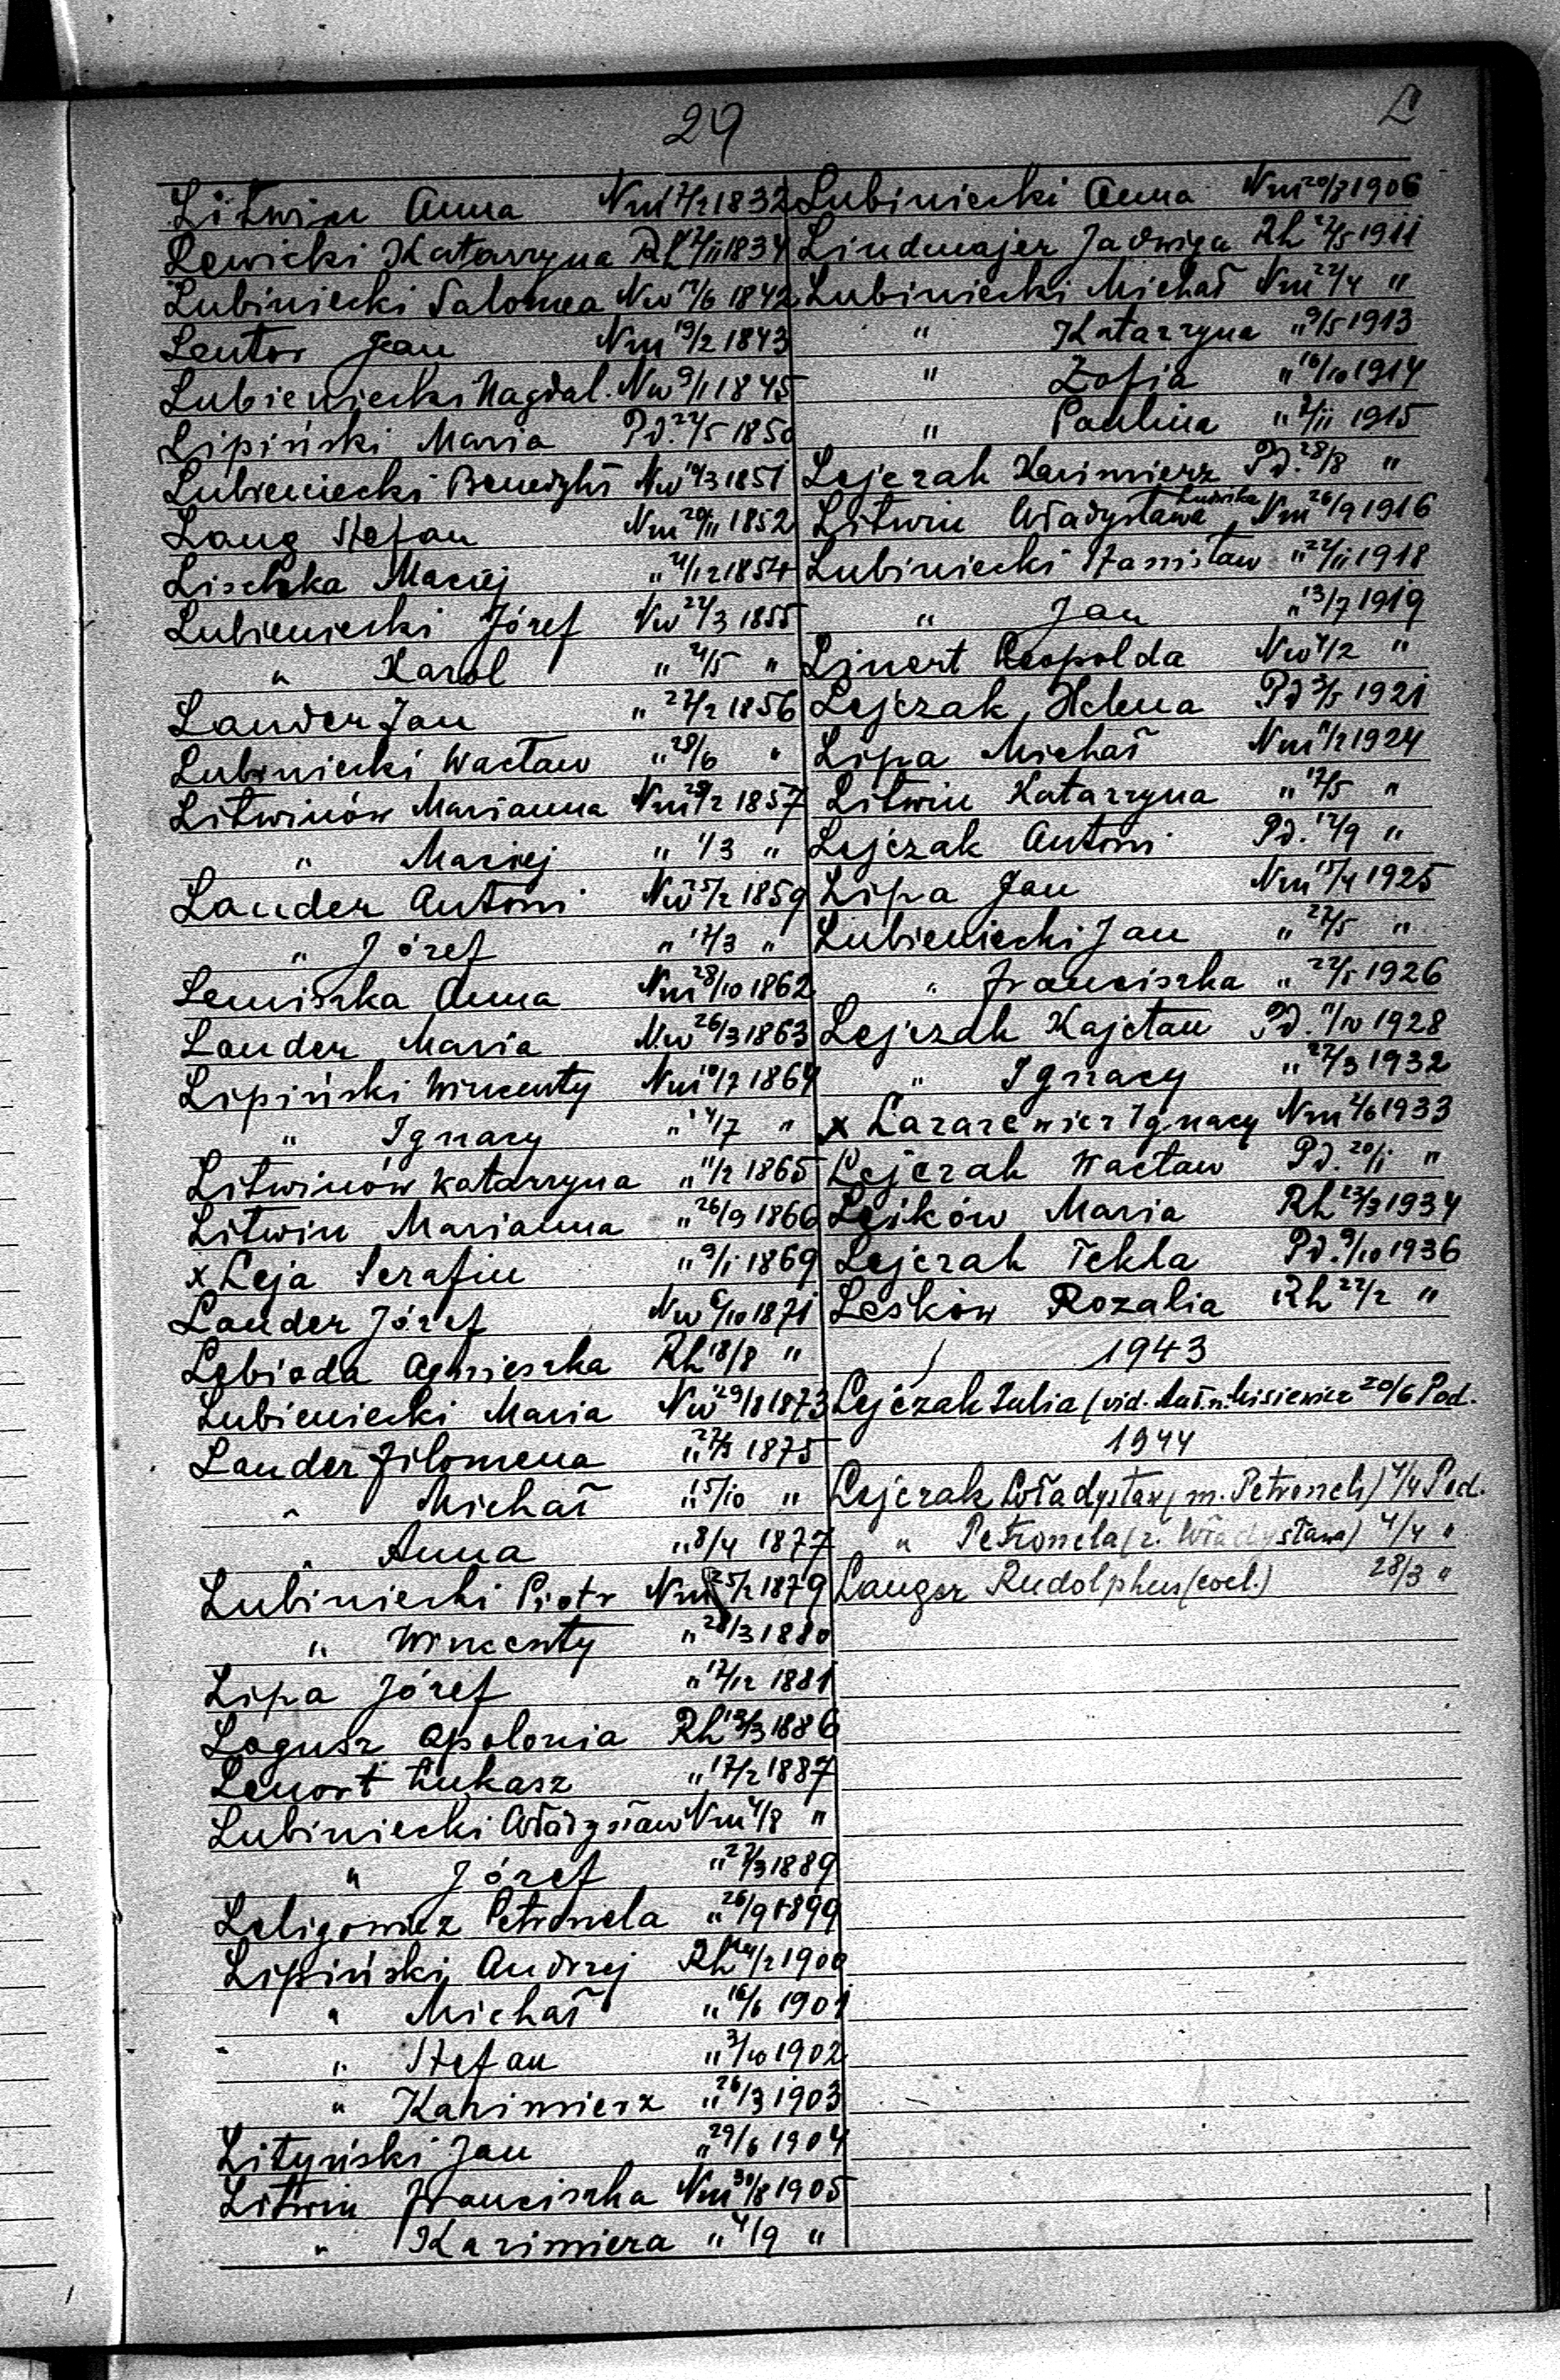 29
L
Litwin Anna Nm 7/2 1832
Lewicki Katarzyna Rh 2/11 1834
Lubiniecki Salomea Nw 17/6 1842
Lentor Jan Nm 19/2 1843
Lubieniecki Magdal. Nw 9/1 1845
Lipiński Maria Pd. 24/5 1850
Lubieniecki Benedykt Nw 10/3 1851
Lang Stefan Nm 20/11 1852
Lischka Maciej " 4/12 1854
Lubieniecki Józef Nw 22/3 1855
" Karol " 4/5 "
Lander Jan " 27/2 1856
Lubiniecki Wacław " 28/6 "
Litwinów Marianna Nm 28/2 1857
" Maciej " 1/3 "
Lander Antoni Nw 25/2 1859
" Józef " 12/3 "
Lemiszka Anna Nm 28/10 1862
Lander Maria Nw 26/3 1863
Lipiński Wincenty Nm 10/7 1864
" Ignacy " 14/7 "
Litwinów Katarzyna " 11/2 1865
Litwin Marianna " 26/9 1866
x Leja Serafin " 9/1 1869
Lander Józef Nw 6/10 1871
Lebioda Agnieszka Rh 18/8 "
Lubieniecki Maria Nw 29/8 1873
Lander Filomena " 1875
" Michał " 15/10 "
" Anna " 8/4 1877
Lubiniecki Piotr Nm 25/2 1879
" Wincenty " 28/3 1880
Lipa Józef " 17/12 1881
Logusz Apolonia Rh 13/3 1886
Lenort Łukasz " 17/2 1887
Lubiniecki Władysław Nm 4/8 "
" Józef " 27/3 1889
Leligowicz Petronela " 26/9 1899
Lipiński Andrzej Rh 14/2 1900
" Michał " 16/6 1901
" Stefan " 3/10 1902
" Kazimierz " 26/3 1903
Lityński Jan " 29/6 1904
Litwin Franciszka Nm 30/8 1905
" Kazimiera " 4/9 "
Lubiniecki Anna Nm 20/7 1906
Lindmajer Jadwiga Rh 27/5 1911
Lubiniecki Michał Nm 22/4 "
" Katarzyna " 9/5 1913
" Zofia " 16/10 1914
" Paulina " 2/11 1915
Lejczak Kazimierz Pd. 28/8 "
Litwin Władysława Ludwika Nm 26/9 1916
Lubiniecki Stanisław " 22/11 1918
" Jan " 13/7 1919
Linert Leopolda Nw 4/2 "
Lejczak Helena Pd 3/5 1921
Lipa Michał Nm 11/2 1924
Litwin Katarzyna " 12/5 "
Lejczak Antoni Pd. 12/9 "
Lipa Jan Nm 15/4 1925
Lubieniecki Jan " 27/5 "
" Franciszka " 1926
Lejczak Kajetan Pd. 11/10 1928
" Ignacy " 27/3 1932
x Łazarewicz Ignacy Nm 4/6 1933
Lejczak Wacław Pd. 20/1 "
Leśków Maria Rh 23/3 1934
Lejczak Tekla Pd. 9/10 1936
Leśków Rozalia Rh 22/2 "
1943
Lejczak Julia (vid. Misiewicz 20/6 Pod.
1944
Lejczak Władysław (m. Petroneli) 4/4 Pod.
" Petronela (ż. Władysława) 4/4 "
Langer Rudolphus (coel.) 28/3 "